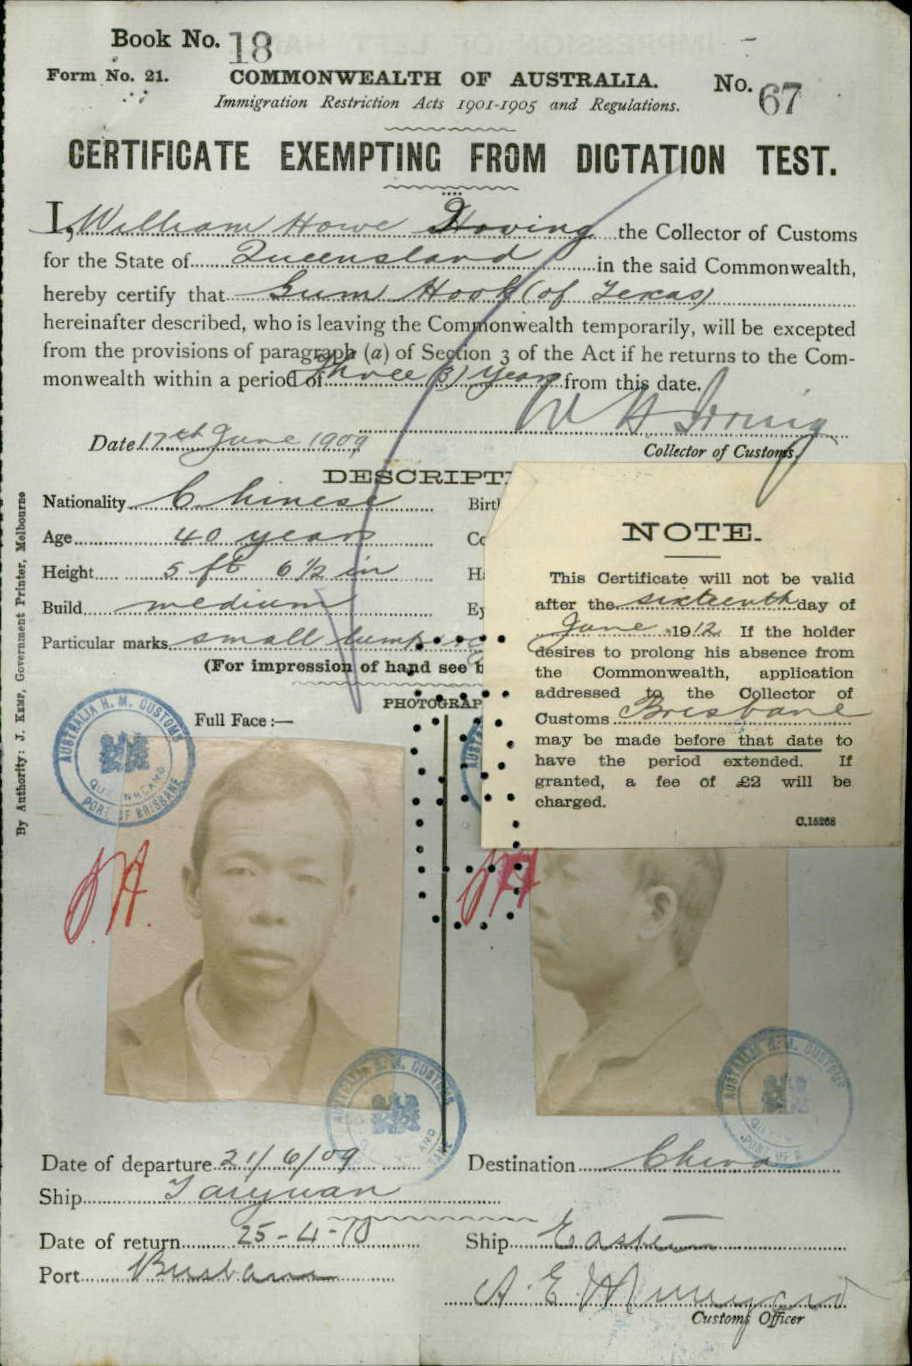 Book No. 18
Form No. 21. COMMONWEALTH OF AUSTRALIA. No. 67
Immigration Restriction Acts 1901-1905 and Regulations.
CERTIFICATE EXEMPTING FROM DICTATION TEST.
I, William Howe Irving the Collector of Customs
for the State of Queensland in the said Commonwealth,
hereby certify that Gum Hook (of Texas)
hereinafter described, who is leaving the Commonwealth temporarily, will be excepted
from the provisions of paragraph (a) of Section 3 of the Act if he returns to the Com-
monwealth within a period of Three (3) years from this date.
W H Irving
Date 17th June 1909 Collector of Customs.
DESCRIPTI
Nationality Chinese Birt
Age 40 years Co
Height 5 ft 6 1/2 in H
Build medium Ey
Particular marks small lump
(For impression of hand see b
PHOTOGRAP
Full Face:—
NOTE.
This Certificate will not be valid
after the sixteenth day of
June 1912. If the holder
desires to prolong his absence from
the Commonwealth, application
addressed to the Collector of
Customs Brisbane
may be made before that date to
have the period extended. If
granted, a fee of £2 will be
charged.
C.15268
By Authority: J. Kemp, Government Printer, Melbourne
AUSTRALIA H. M. CUSTOMS
QUEENSLAND
PORT OF BRISBANE
AUSTRALIA H. M. CUSTOMS
AUSTRALIA H. M. CUSTOMS
Date of departure 21/6/09 Destination China
Ship Taiyuan
Date of return 25-4-10 Ship Eastern
Port Brisbane
A. E.
Customs Officer